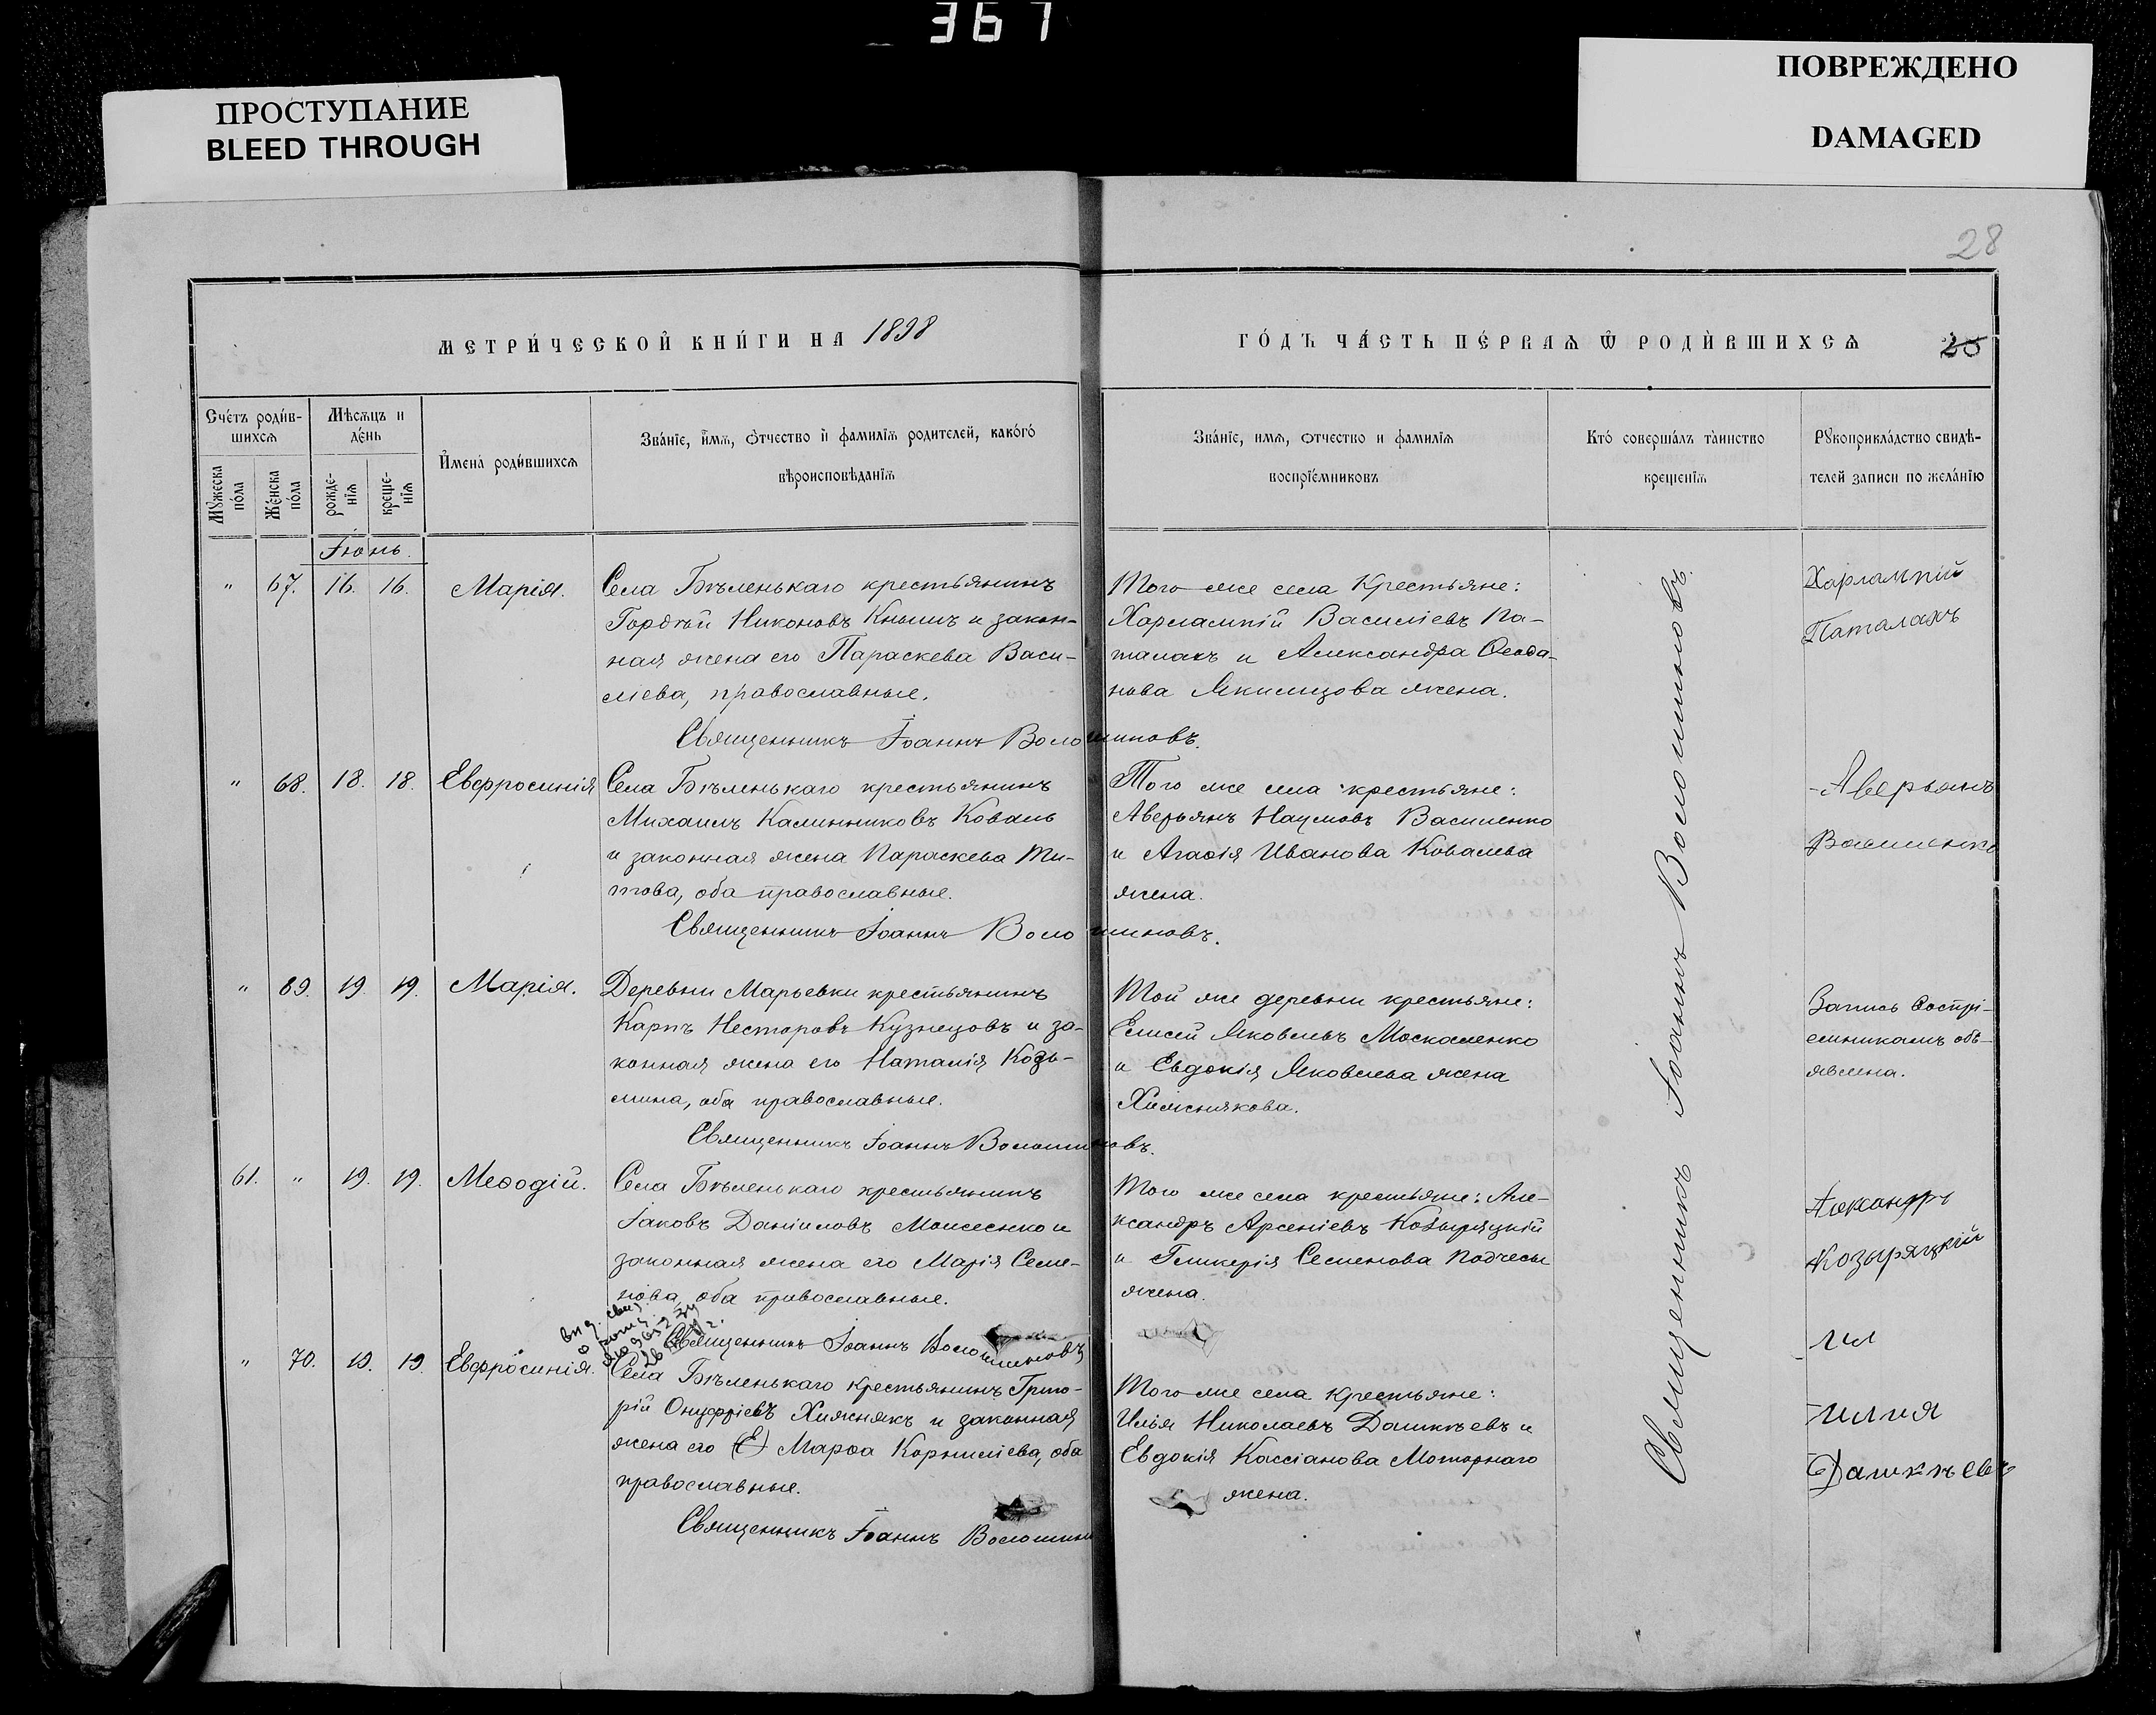 367
ПРОСТУПАНИЕ
BLEED THROUGH
ПОВРЕЖДЕНО
DAMAGED
28
МЕТРИ́ЧЕСКОЙ КНИ́ГИ НА 1898
ГО́ДЪ ЧА́СТЬ ПЕ́РВАѦ Ѿ РОДИ́ВШИХСѦ
Сче́тъ роди́в-
шихсѧ
Мѣсѧцъ и
де́нь
Мꙋжеска
по́ла
Же́нска
по́ла
рожде-
нїѧ
креще-
нїѧ
И҆мена̀ роди́вшихсѧ
Зва́нїе, и҆́мѧ, ѻ҆́тчество и҆ фамилїѧ родителей, како́го
вѣроисповѣданїѧ
Зва́нїе, имѧ, ѻтчество и фамилїѧ
воспрїе́мниковъ
Кто́ соверша́лъ та̀инство
крещенїѧ
Рꙋкоприкла́дство свидѣ-
телей записи по жела́нїю
Іюнь.
" 67. 16. 16. Марія.
Села Бѣленькаго крестьянинъ
Гордѣй Никоновъ Кнышъ и закон-
ная жена его Параскева Васи-
ліева, православные.
Священникъ Іоаннъ Волошиновъ.
Того же села Крестьяне:
Харлампій Василіевъ Па-
талахъ и Александра Ѳеода-
нова Якимцова жена.
Харлампій
Паталахъ
" 68. 18. 18. Евфросинія
Села Бѣленькаго крестьянинъ
Михаилъ Калинниковъ Коваль
и законная жена Параскева Ти-
това, оба православные.
Священникъ Іоаннъ Волошиновъ.
Того же села крестьяне:
Аверьянъ Наумовъ Василенко
и Агафія Иванова Ковалева
жена.
Аверьянъ
Василенко
" 69. 19. 19. Марія.
Деревни Марьевки крестьянинъ
Карпъ Несторовъ Кузнецовъ и за-
конная жена его Наталія Козь-
мина, оба православные.
Священникъ Іоаннъ Волошиновъ.
Той же деревни крестьяне:
Елисей Яковлевъ Москаленко
и Евдокія Яковлева жена
Хижнякова.
Запись воспрі-
емникамъ объ-
явлена.
61. " 19. 19. Меѳодій.
Села Бѣленькаго крестьянинъ
Іаковъ Даніиловъ Моисеенко и
законная жена его Марія Семе-
нова, оба православные.
Священникъ Іоаннъ Волошиновъ
Того же села крестьяне: Але-
ксандръ Арсеніевъ Козыряцкій
и Гликерія Семенова Подчесы
жена.
Александръ
Козыряцкій
" 70. 19. 19. Евфросинія.
Села Бѣленькаго крестьянинъ Григо-
рій Онуфріевъ Хижнякъ и законная
жена его (Е) Марѳа Корниліева, оба
православные.
Священникъ Іоаннъ Волошинов
Того же села крестьяне:
Илья Николаевъ Дашкѣевъ и
Евдокія Кассіанова Моторнаго
жена.
Илия
Дашкѣевъ
Священникъ Іоаннъ Волошиновъ.